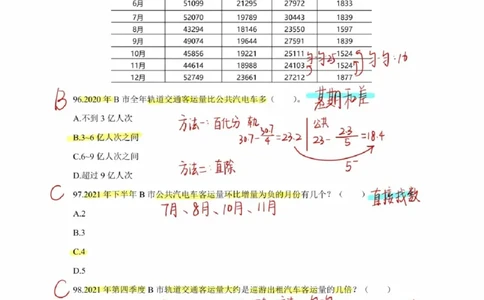 6月 51099 21295 27972 1833
7月 52070 19789 30443 1839
8月 43294 18146 23550 1597
9月 49074 19644 27591 1839
10月 45856 19221 25111 1524
11月 44614 18988 24103 1524
12月 52749 23661 27212 1877
B 96.2020 年 B 市全年轨道交通客运量比公共汽电车多( )。 基期和差
A.不到 3 亿人次
方法一:百化分 轨 307-307/4=23.2 公共 23-23/5=18.4
B.3~6 亿人次之间
C.6~9 亿人次之间
5
方法二:直除
D.超过 9 亿人次
C 97.2021 年下半年 B 市公共汽电车客运量环比增量为负的月份有几个?( ) 直接找数
A.2
7月、8月、10月、11月
B.3
C.4
D.5
C 98.2021 年第四季度 B 市轨道交通客运量大约是巡游出租汽车客运量的几倍?( )